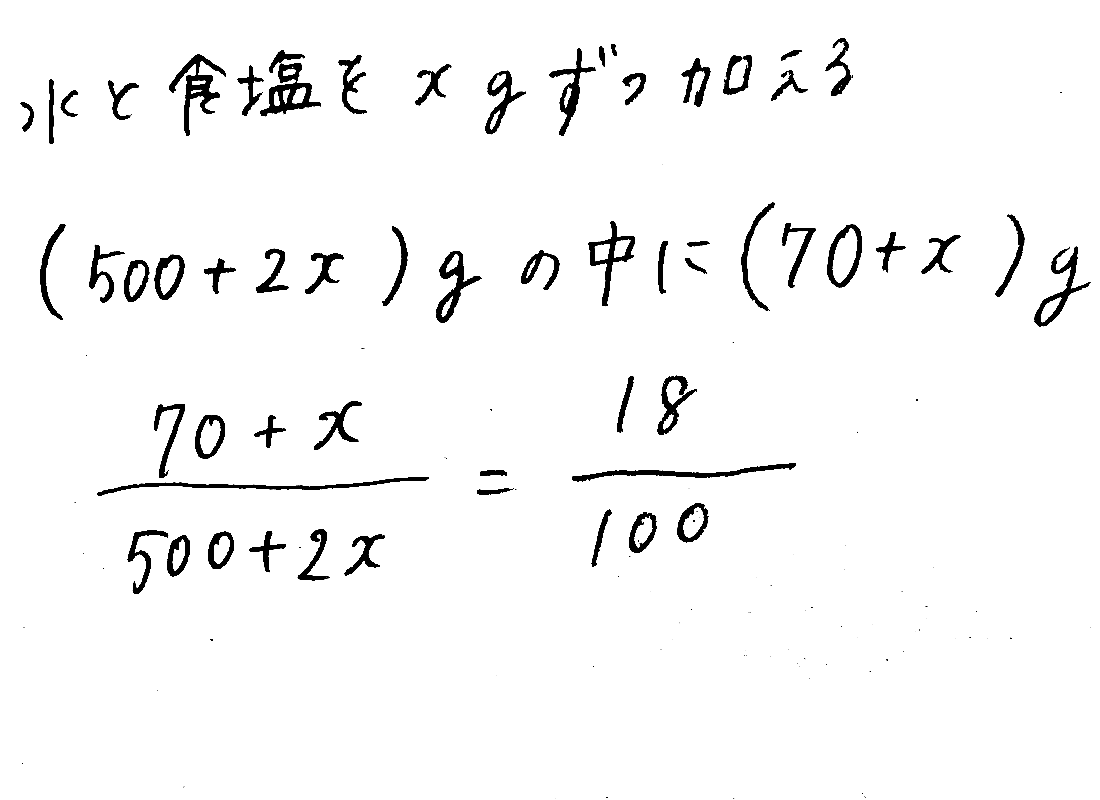 水と食塩を x g ずつ加える
(500+2x)g の中に(70+x)g
70+x / 500+2x = 18 / 100